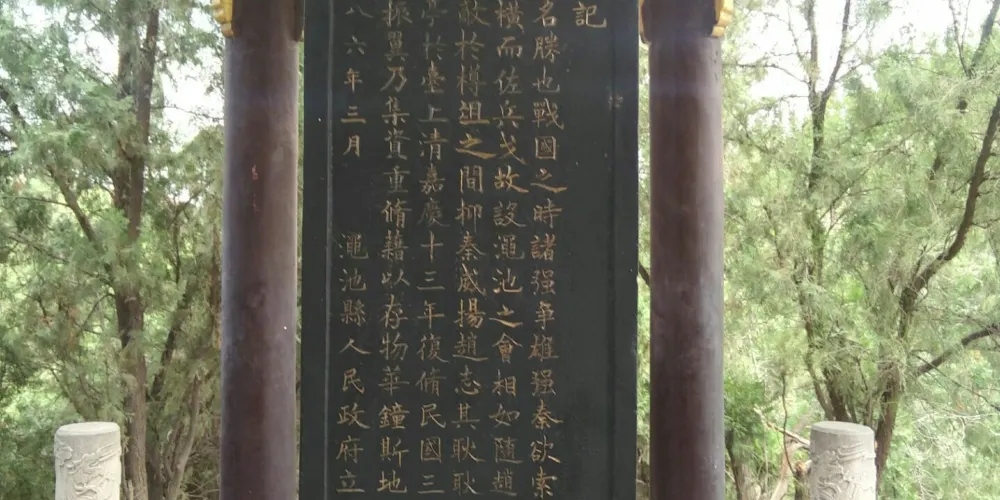 記
名勝也戰國之時諸强爭雄强秦欲索
橫而佐兵戈故設澠池之會相如隨趙
敵於樽俎之間抑秦威揚趙志其耿耿
亭於臺上清嘉慶十三年復脩民國三
振翼乃集資重脩藉以存物華鐘斯地
八六年三月 澠池縣人民政府立